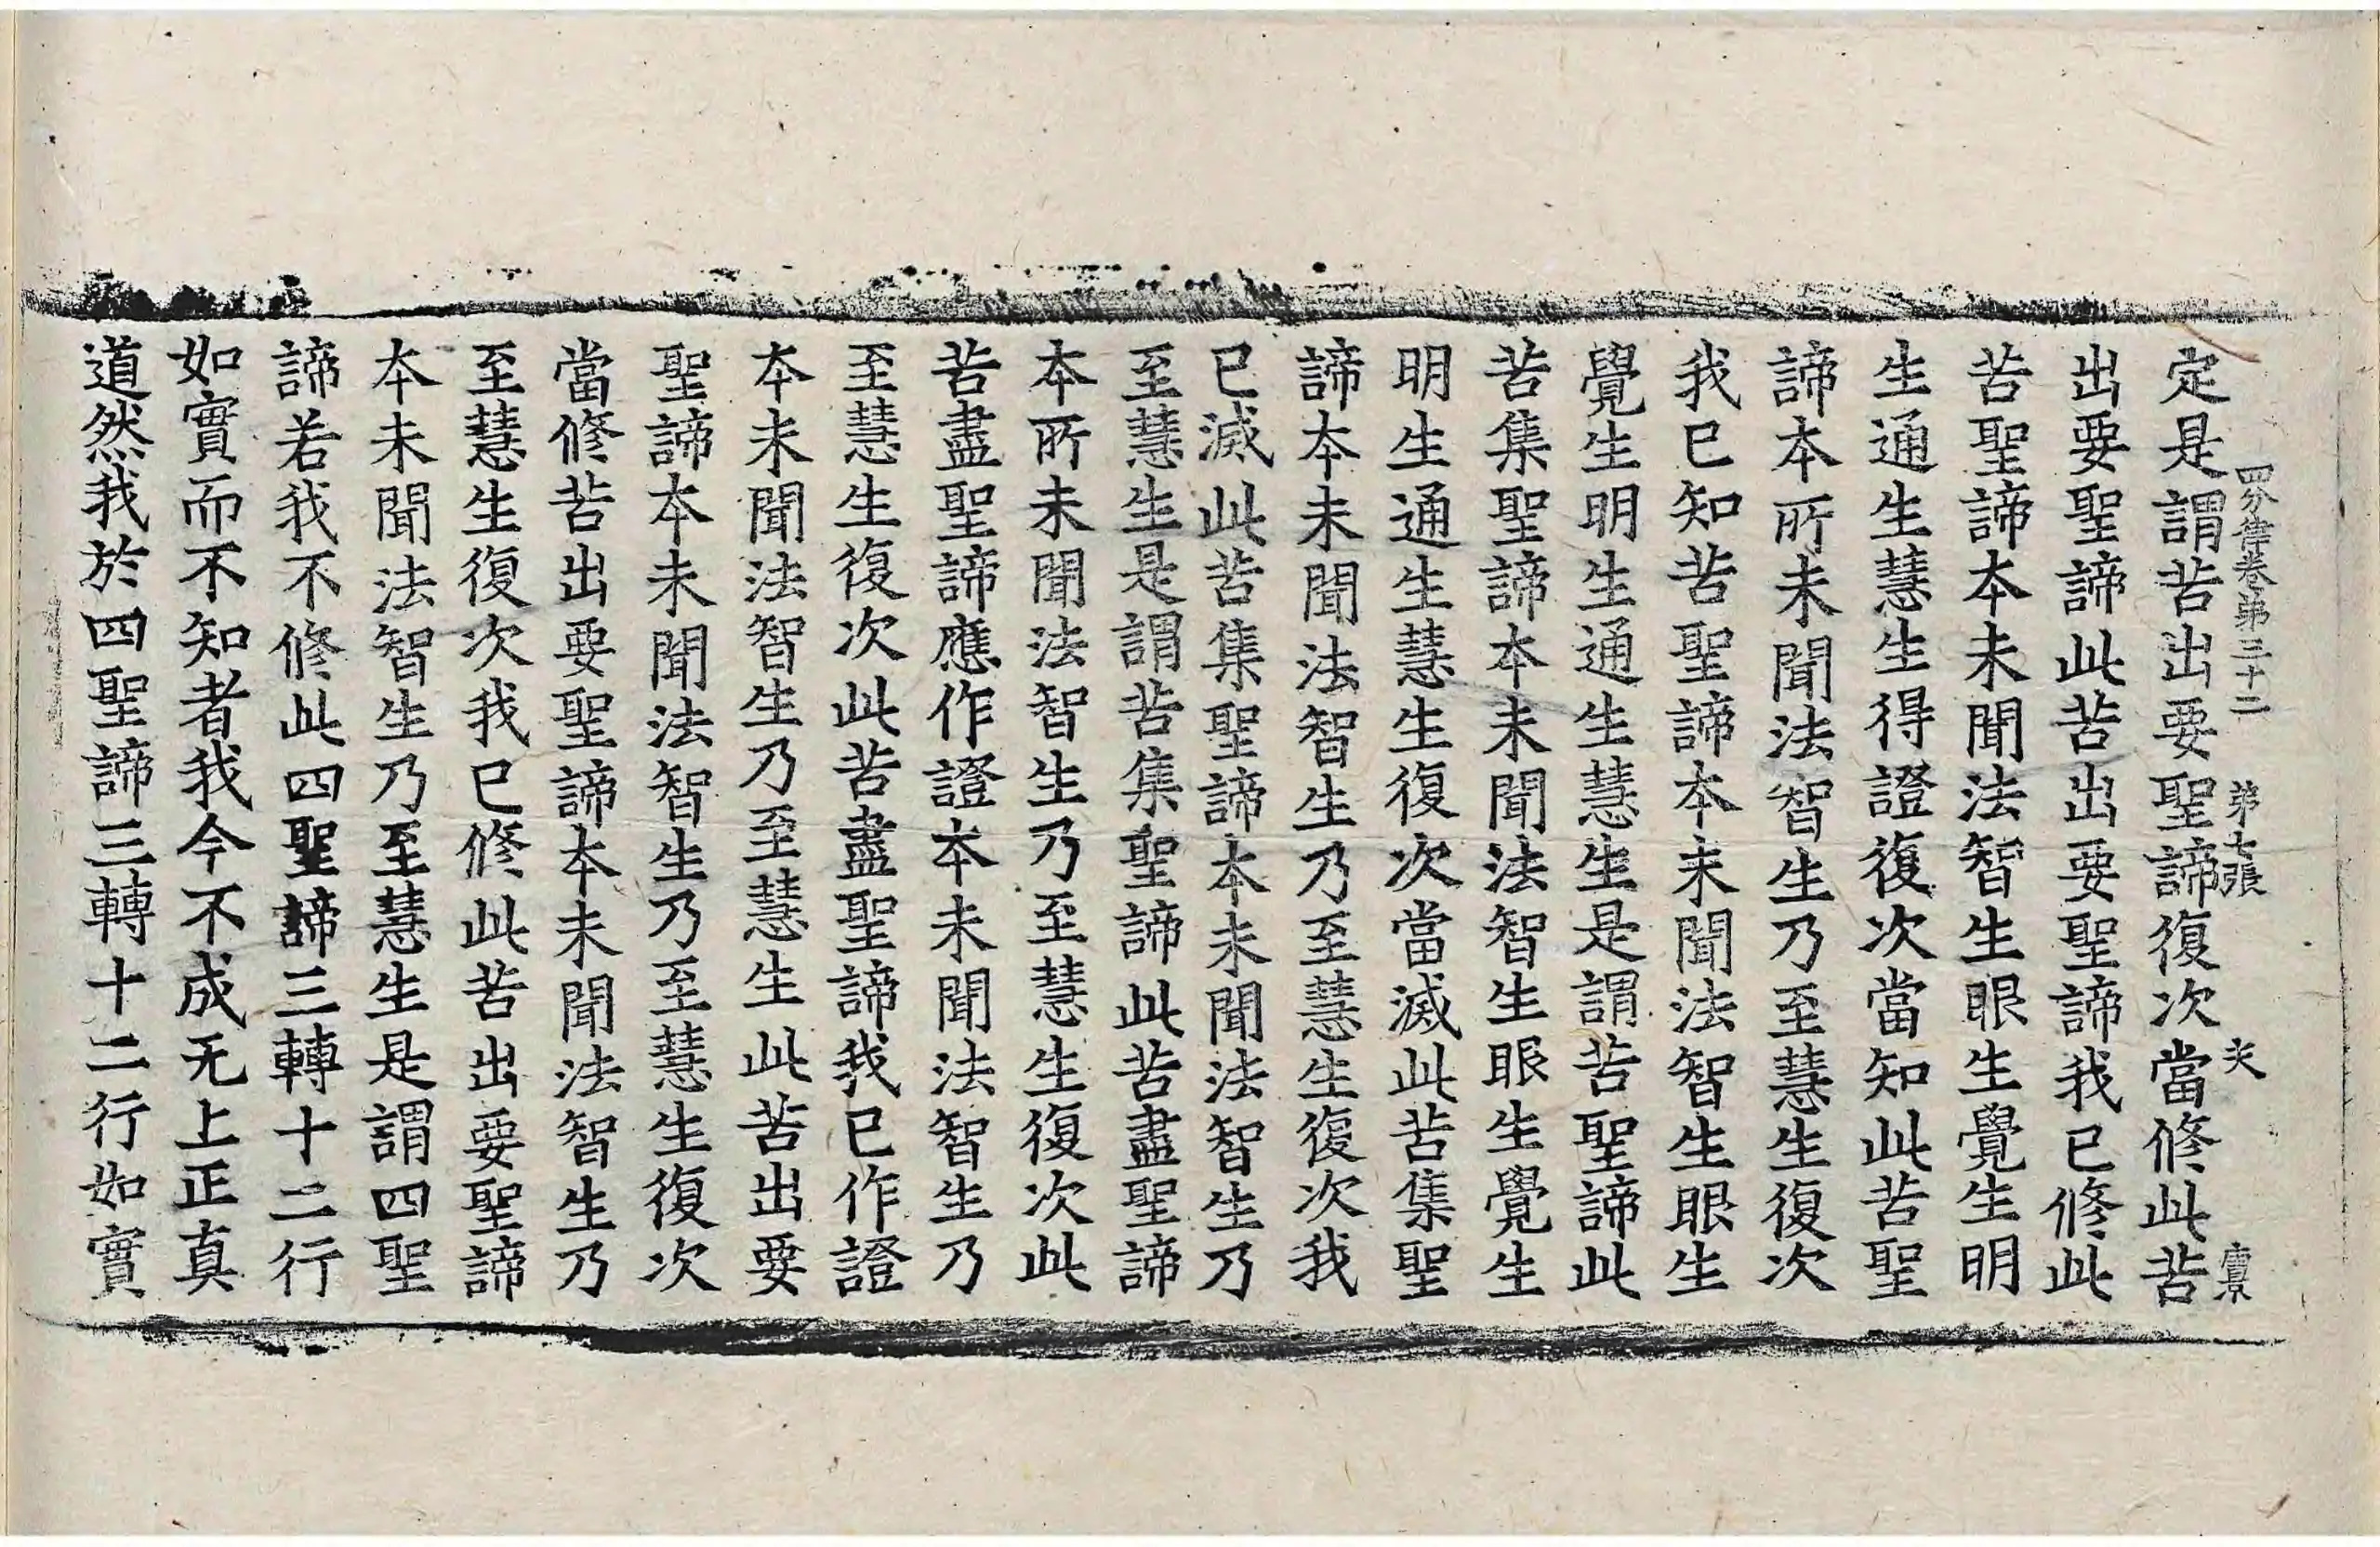 四分律卷苐三十二 苐七張 夾
定是謂苦出要聖諦復次當修此苦
出要聖諦此苦出要聖諦我已修此
苦聖諦本未聞法智生眼生覺生明
生通生慧生得證復次當知此苦聖
諦本所未聞法智生乃至慧生復次
我已知苦聖諦本未聞法智生眼生
覺生明生通生慧生是謂苦聖諦此
苦集聖諦本未聞法智生眼生覺生
明生通生慧生復次當滅此苦集聖
諦本未聞法智生乃至慧生復次我
已滅此苦集聖諦本未聞法智生乃
至慧生是謂苦集聖諦此苦盡聖諦
本所未聞法智生乃至慧生復次此
苦盡聖諦應作證本未聞法智生乃
至慧生復次此苦盡聖諦我已作證
本未聞法智生乃至慧生此苦出要
聖諦本未聞法智生乃至慧生復次
當修苦出要聖諦本未聞法智生乃
至慧生復次我已修此苦出要聖諦
本未聞法智生乃至慧生是謂四聖
諦若我不修此四聖諦三轉十二行
如實而不知者我今不成无上正真
道然我於四聖諦三轉十二行如實